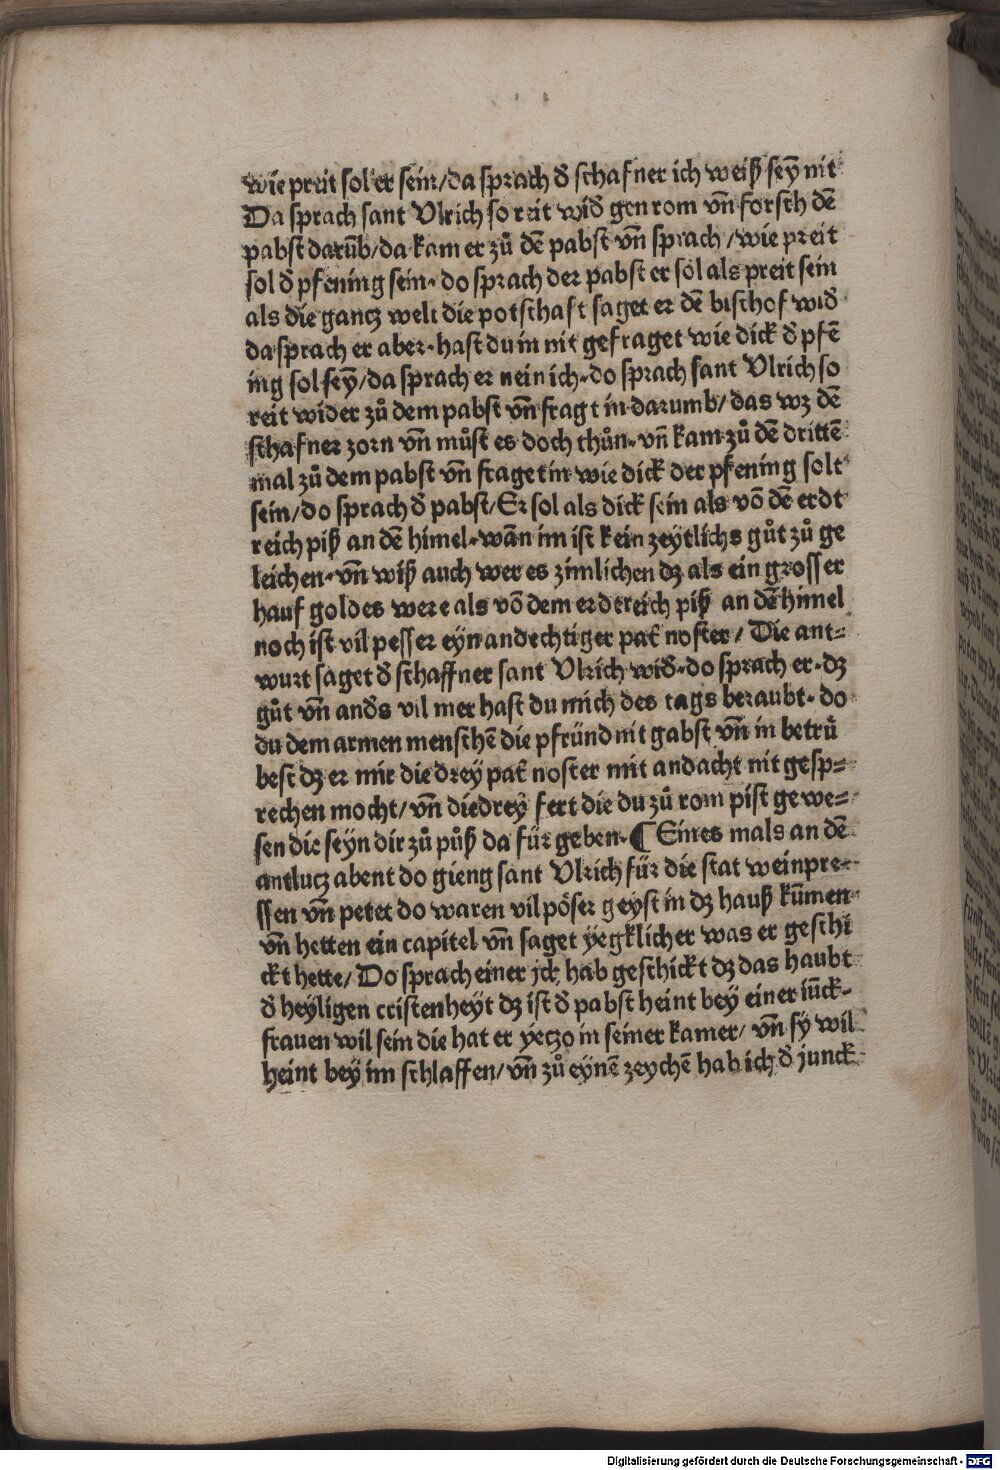 wie preit sol er sein/da sprach d̕ schafner ich weiß sey̅ nit
Da sprach sant Vlrich so reit wid̕ gen rom vn̅ forsch de̅
pabst daru̅b/da kam er zů de̅ pabst vn̅ sprach /wie preit
sol d̕ pfening sein· do sprach der pabst er sol als preit sein
als die gancz welt die potschaft saget er de̅ bischof wid̕
da sprach er aber·hast du in nit gefraget wie dick d̕ pfe̅
ing sol sey̅/da sprach er nein ich·do sprach sant Vlrich so
reit wider zů dem pabst vn̅ fragt in darumb/das wz de̅
schafner zorn vn̅ můst es doch thůn·vn̅ kam zů de̅ dritte̅
mal zů dem pabst vn̅ fraget in wie dick der pfening solt
sein/do sprach d̕ pabst/Er sol als dick sein als vo̅ de̅ erdt
reich piß an de̅ himel·wa̅n im ist kein zeytlichs gůt zů ge
leichen·vn̅ wiß auch wer es zimlichen dz als ein grosser
hauf goldes were als vo̅ dem erdtreich piß an de̅ himel
noch ist vil pesser eyn andechtiger pat̅ noster/ Die ant=
wurt saget d̕ schaffner sant Vlrich wid̕·do sprach er·dz
gůt vn̅ and̕s vil mer hast du mich des tags beraubt·do
du dem armen mensche̅ die pfründ nit gabst vn̅ in betrů
best dz er mir die drey pat̅ noster mit andacht nit gesp=
rechen mocht/vn̅ die drey fert die du zů rom pist gewe=
sen die seyn dir zů půß da für geben·¶ Eines mals an de̅
antlucz abent do gieng sant Vlrich für die stat weinpre=
ssen vn̅ petet do waren vil pöser geyst in dz hauß ku̅men
vn̅ hetten ein capitel vn̅ saget yegklicher was er geschi
ckt hette/ Do sprach einer jch hab geschickt dz das haubt
d̕ heyligen cristenheyt dz ist d̕ pabst heint bey einer iu̅ck=
frauen wil sein die hat er yeczo in seiner kamer/ vn̅ sy wil
heint bey im schlaffen/vn̅ zů eyne̅ zeyche̅ hab ich d̕ junck
Digitalisierung gefördert durch die Deutsche Forschungsgemeinschaft - DFG